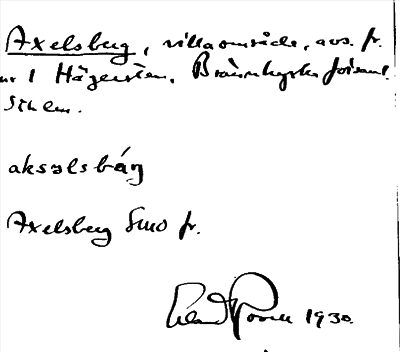 Axelsberg, villaområde, avs. fr.
nr 1 Hägersten. Brännkyrka församl.
Sthlm.
aksəlsbárj
Axelsberg fr.
1930.